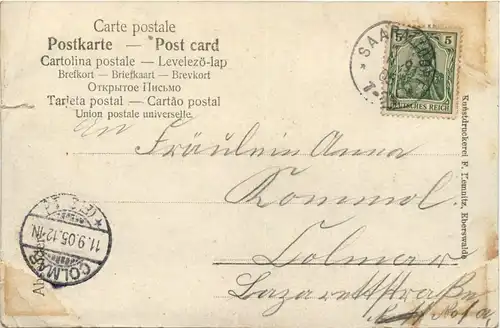 Carte postale
Postkarte — Post card
Cartolina postale — Levelező-lap
Brefkort — Briefkaart — Brevkort
Открытое Письмо
Tarjeta postal — Cartão postal
Union postale universelle.
An
Fräulein Anna
Rommel
Colmar
Lazarettstraße
5
5
DEUTSCHES REICH
COLMAR
11.9.05.12-1N
Kunstdruckerei F. Lemnitz, Eberswalde